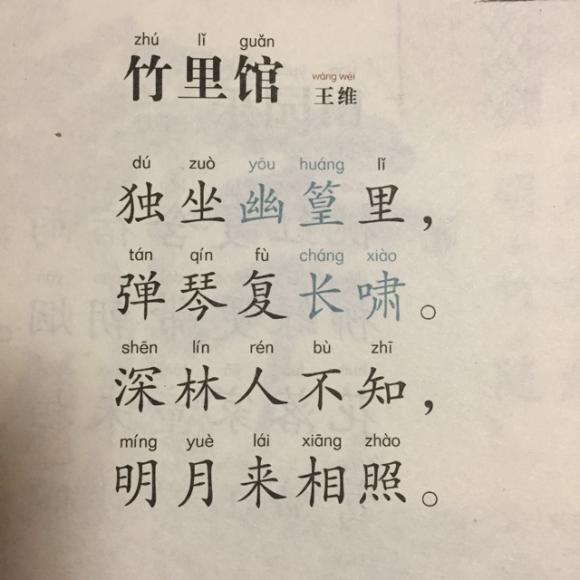 zhú lǐ guǎn
竹里馆 wáng wéi
王维
dú zuò yōu huáng lǐ
独坐幽篁里，
tán qín fù cháng xiào
弹琴复长啸。
shēn lín rén bù zhī
深林人不知，
míng yuè lái xiāng zhào
明月来相照。